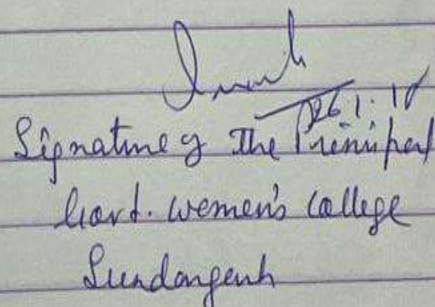 26.1.18
Signature of The Principal
Govt. Women's College
Sundargarh